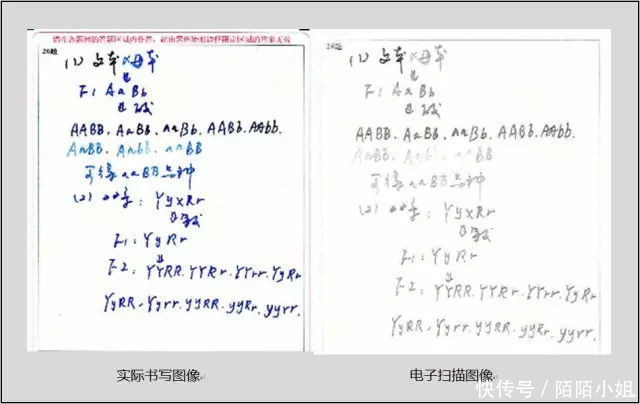 请在各题目的答题区域内作答，超出黑色矩形边框限定区域的答案无效
26题
(1) 父本×母本
↓
F1 AaBb
↓
AABB、AaBb、aaBb、AABb、AAbb、
AaBB、Aabb、aaBB
可得aaBB品种
(2) 书写：YyXRr
F1：YyRr
↓
F2：YYRR、YYRr、YYrr、YyRr
YyRR、Yyrr、yyRR、yyRr、yyrr、
26题
(1) 父本×母本
↓
F1 AaBb
↓
AABB、AaBb、aaBb、AABb、AAbb、
AaBB、Aabb、aaBB
可得aaBB品种
(2) YyXRr
F1：YyRr
↓
F2：YYRR、YYRr、YYrr、YyRr
YyRR、Yyrr、yyRR、yyRr、yyrr、
实际书写图像
电子扫描图像
快传号/陌陌小姐